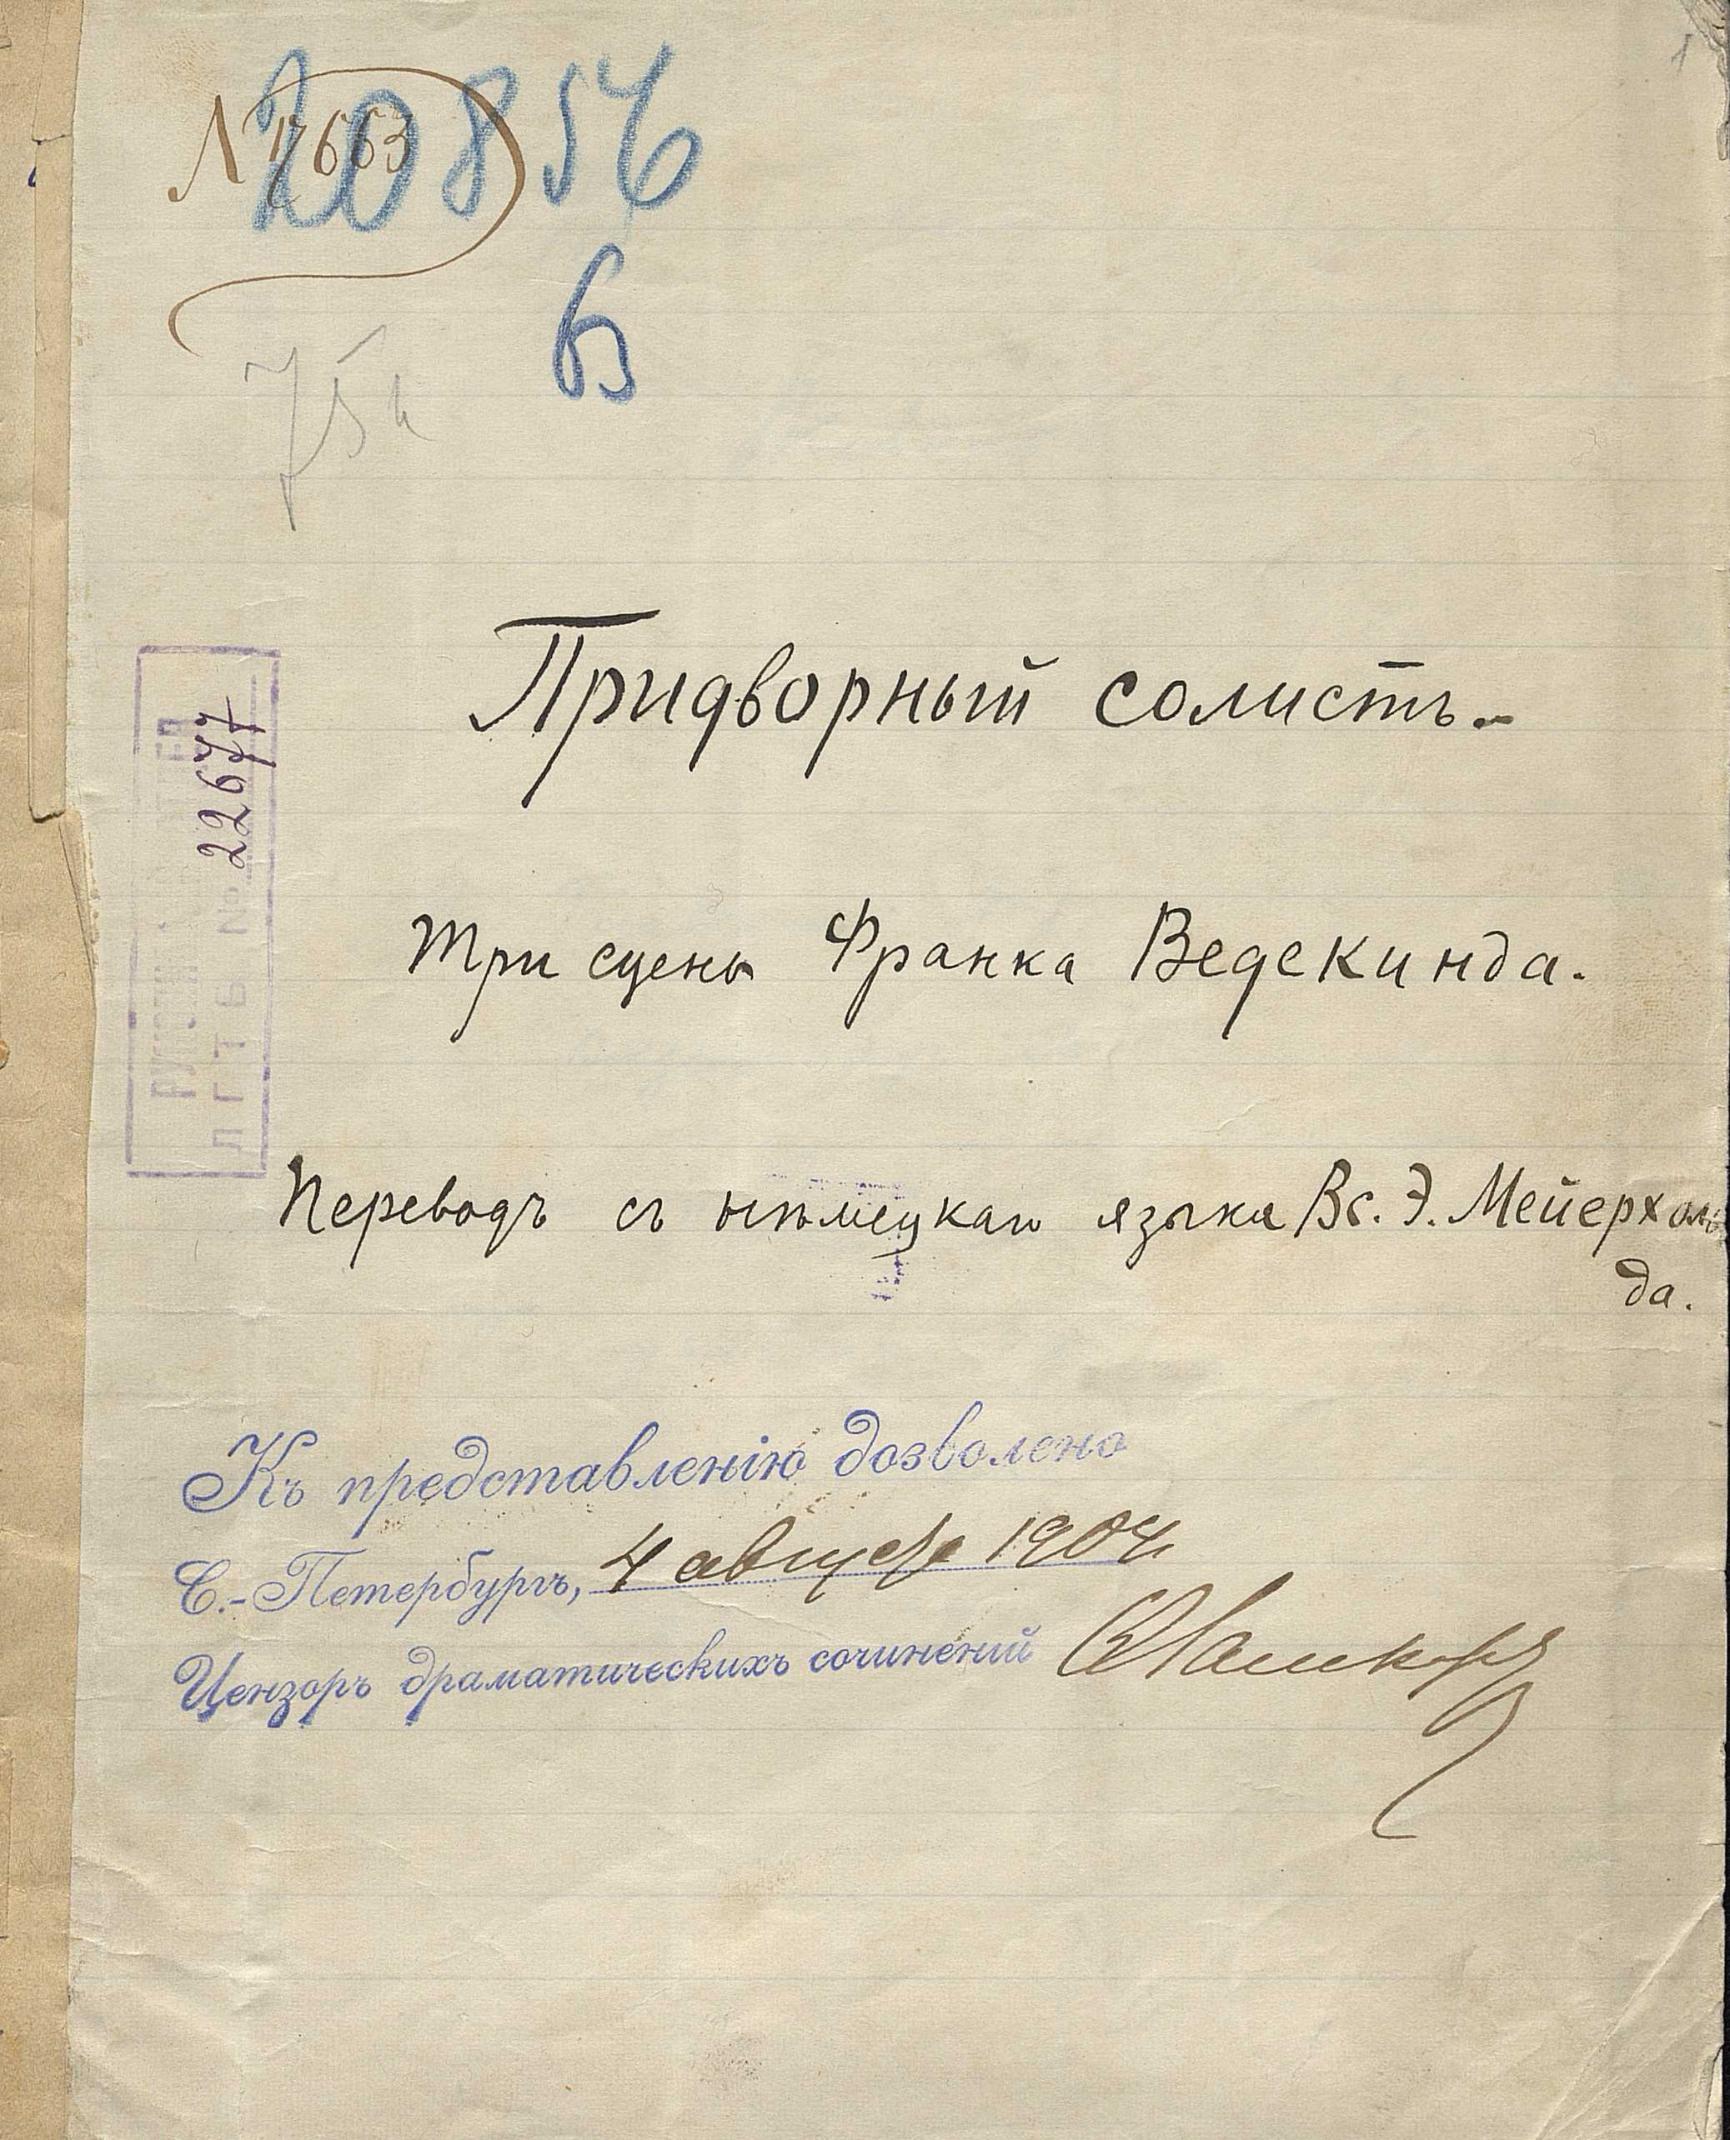 1
20856
№ 17663
В
Придворный солистъ.
Три сцены Франка Ведекинда.
Переводъ съ нѣмецкаго языка Вс. Э. Мейерхоль
да.
Къ представленію дозволено
С.-Петербургъ, 4 августа 1904 г.
Цензоръ драматическихъ сочиненій
ЛГТБ № 22677